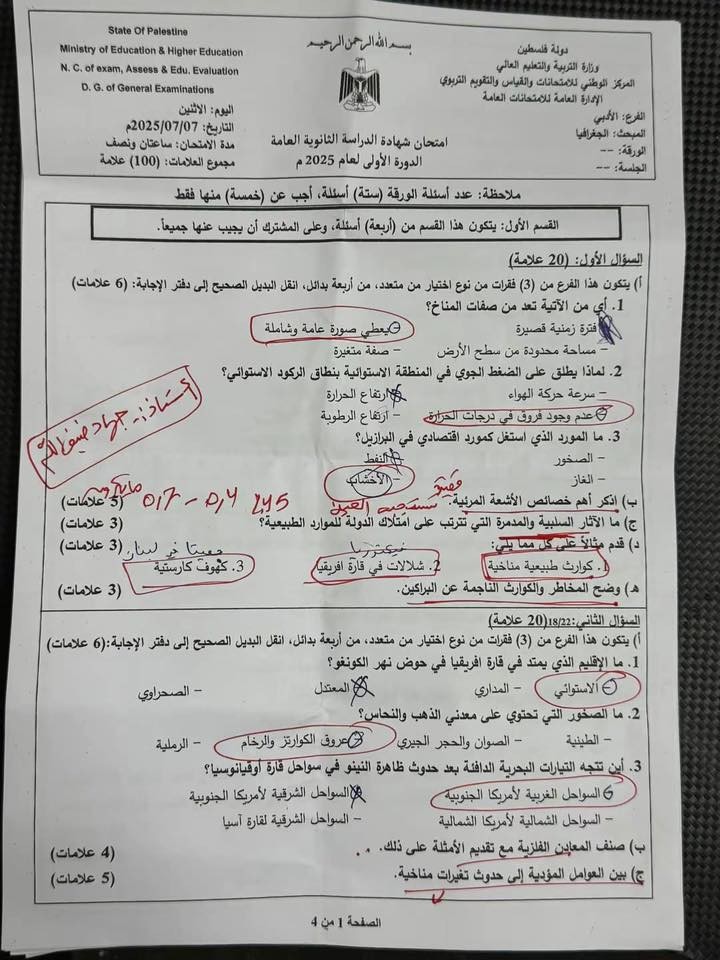 State Of Palestine
Ministry of Education & Higher Education
N. C. of exam, Assess & Edu. Evaluation
D. G. of General Examinations
بسم الله الرحمن الرحيم
دولة فلسطين
وزارة التربية والتعليم العالي
المركز الوطني للامتحانات والقياس والتقويم التربوي
الإدارة العامة للامتحانات العامة
الفرع: الأدبي
المبحث: الجغرافيا
الورقة: --
الجلسة: --
امتحان شهادة الدراسة الثانوية العامة
الدورة الأولى لعام 2025 م
اليوم: الاثنين
التاريخ: 2025/07/07م
مدة الامتحان: ساعتان ونصف
مجموع العلامات: (100) علامة
ملاحظة: عدد أسئلة الورقة (ستة) أسئلة، أجب عن (خمسة) منها فقط
القسم الأول: يتكون هذا القسم من (أربعة) أسئلة، وعلى المشترك أن يجيب عنها جميعاً.
السؤال الأول: (20 علامة)
أ) يتكون هذا الفرع من (3) فقرات من نوع اختيار من متعدد، من أربعة بدائل، انقل البديل الصحيح إلى دفتر الإجابة: (6 علامات)
1. أي من الآتية تعد من صفات المناخ؟
فترة زمنية قصيرة - يعطي صورة عامة وشاملة
- مساحة محدودة من سطح الأرض - صفة متغيرة
2. لماذا يطلق على الضغط الجوي في المنطقة الاستوائية بنطاق الركود الاستوائي؟
- سرعة حركة الهواء - ارتفاع الحرارة
- عدم وجود فروق في درجات الحرارة - ارتفاع الرطوبة
أستاذ: جهاد ضيف الله
3. ما المورد الذي استغل كمورد اقتصادي في البرازيل؟
- الصخور - النفط
- الغاز - الأخشاب
ب) اذكر أهم خصائص الأشعة المرئية. (5 علامات)
0,7 - 0,4
%45
ج) ما الآثار السلبية والمدمرة التي تترتب على امتلاك الدولة للموارد الطبيعية؟ (3 علامات)
د) قدم مثالاً على كل مما يلي: (3 علامات)
فيكتوريا
جعيتا في لبنان
1. كوارث طبيعية مناخية 2. شلالات في قارة افريقيا 3. كهوف كارستية
هـ) وضح المخاطر والكوارث الناجمة عن البراكين. (3 علامات)
السؤال الثاني: 18/22 (20 علامة)
أ) يتكون هذا الفرع من (3) فقرات من نوع اختيار من متعدد، من أربعة بدائل، انقل البديل الصحيح إلى دفتر الإجابة: (6 علامات)
1. ما الإقليم الذي يمتد في قارة افريقيا في حوض نهر الكونغو؟
- الاستوائي - المداري - المعتدل - الصحراوي
2. ما الصخور التي تحتوي على معدني الذهب والنحاس؟
- الطينية - الصوان والحجر الجيري - عروق الكوارتز والرخام - الرملية
3. أين تتجه التيارات البحرية الدافئة بعد حدوث ظاهرة النينو في سواحل قارة أوقيانوسيا؟
- السواحل الغربية لأمريكا الجنوبية - السواحل الشرقية لأمريكا الجنوبية
- السواحل الشمالية لأمريكا الشمالية - السواحل الشرقية لقارة آسيا
ب) صنف المعادن الفلزية مع تقديم الأمثلة على ذلك. (4 علامات)
ج) بين العوامل المؤدية إلى حدوث تغيرات مناخية. (5 علامات)
الصفحة 1 من 4